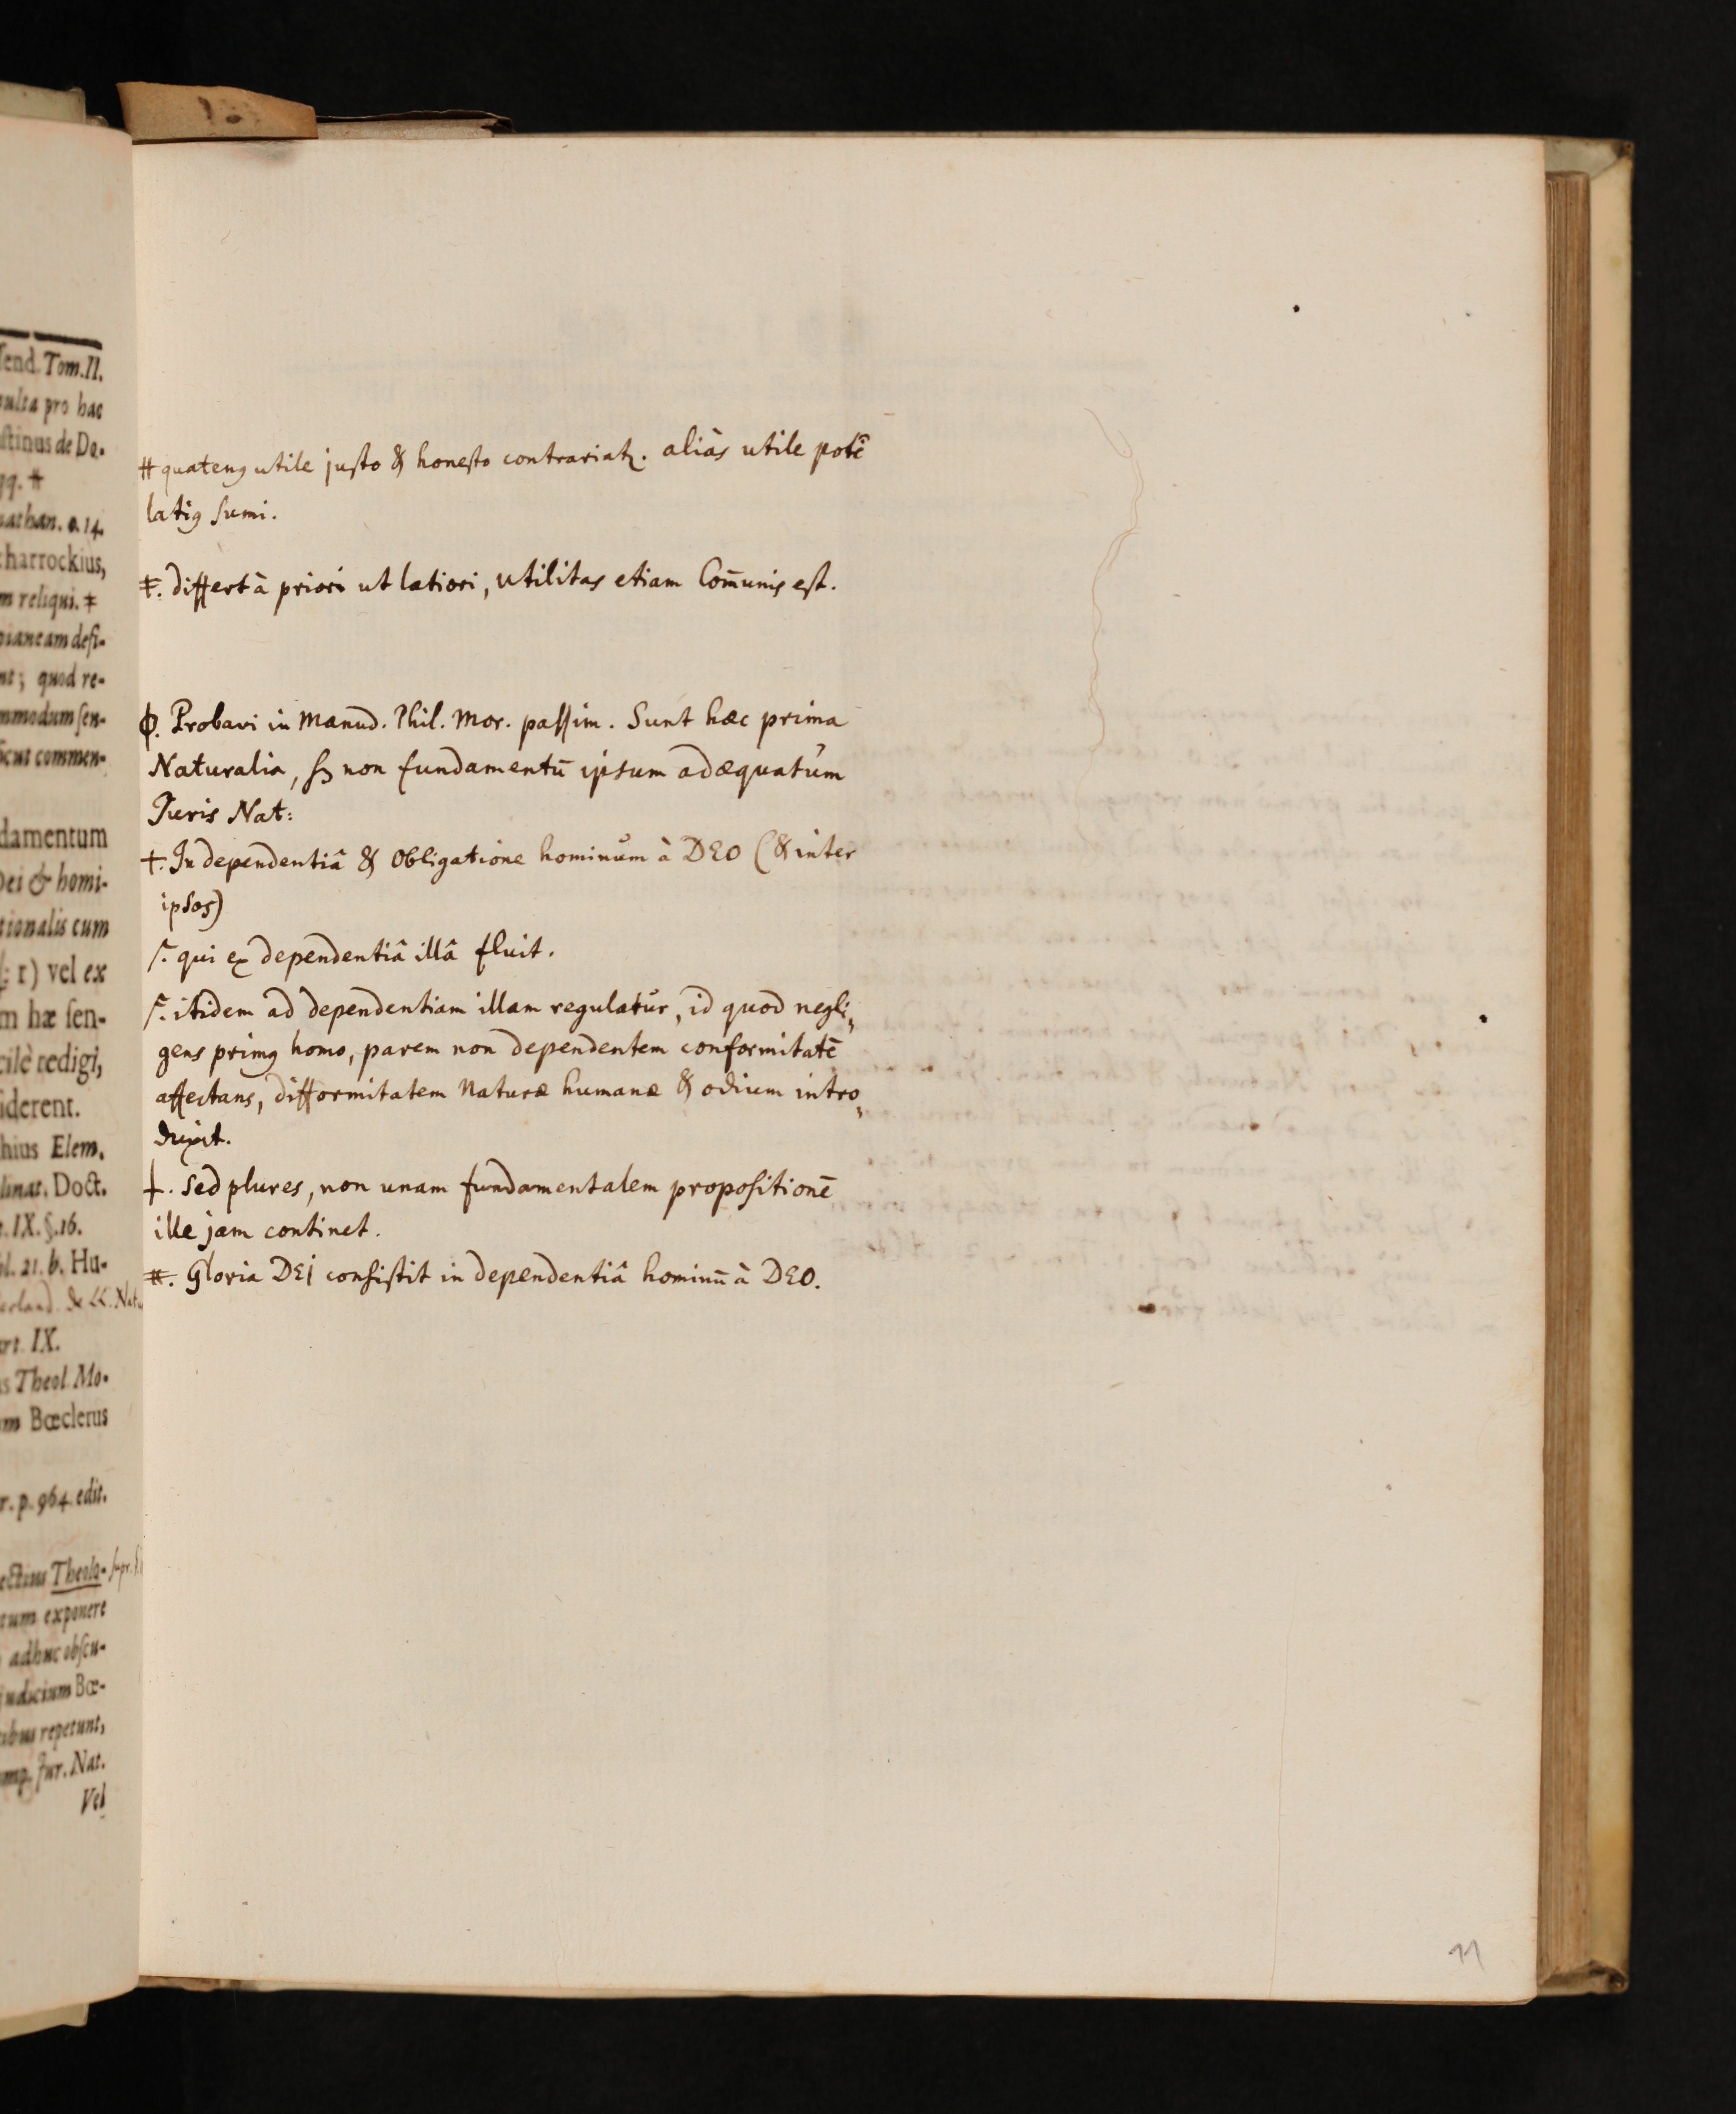 fend. Tom. II.
multa pro hac
stinus de Do-
qq. ‡
nathan. o. 14.
charrockius,
m reliqui. ‡
piane am defi-
nt; quod re-
mmodum sen-
commen-
damentum
Dei & homi-
tionalis cum
r) vel ex
m hæ sen-
cilè redigi,
siderent.
hius Elem.
linat. Doct.
IX. §. 16.
21. b. Hu-
erland. de LL. Natu
art. IX.
s Theol. Mo-
m Bœclerus
r. p. 964. edit.
Theolo-
tum exponere
adhuc obscu-
judicium Bœ-
ibus repetunt,
Jur. Nat.
Vel
# quatenꝰ utile justo & honesto contrariatꝛ. aliàs utile potē
latiꝰ sumi.
‡. differt à priori ut latiori, utilitas etiam Com̄unis est.
ϕ. Probavi in Manud. Phil. Mor. passim. Sunt hæc prima
Naturalia, sꝫ non fundamentū ipsum adæquatŭm
Juris Nat:
†. In dependentiâ & Obligatione hominŭm à DEO (& inter
ipsos)
qui ex dependentiâ illâ fluit.
itidem ad dependentiam illam regulatŭr, id quod negli-
gens primꝰ homo, parem non dependentem conformitatē
affectans, difformitatem Naturæ humanæ & odium intro-
duxit.
Sed plures, non unam fundamentalem propositionē
ille jam continet.
Gloria DEI consistit in dependentiâ hominū à DEO.
11